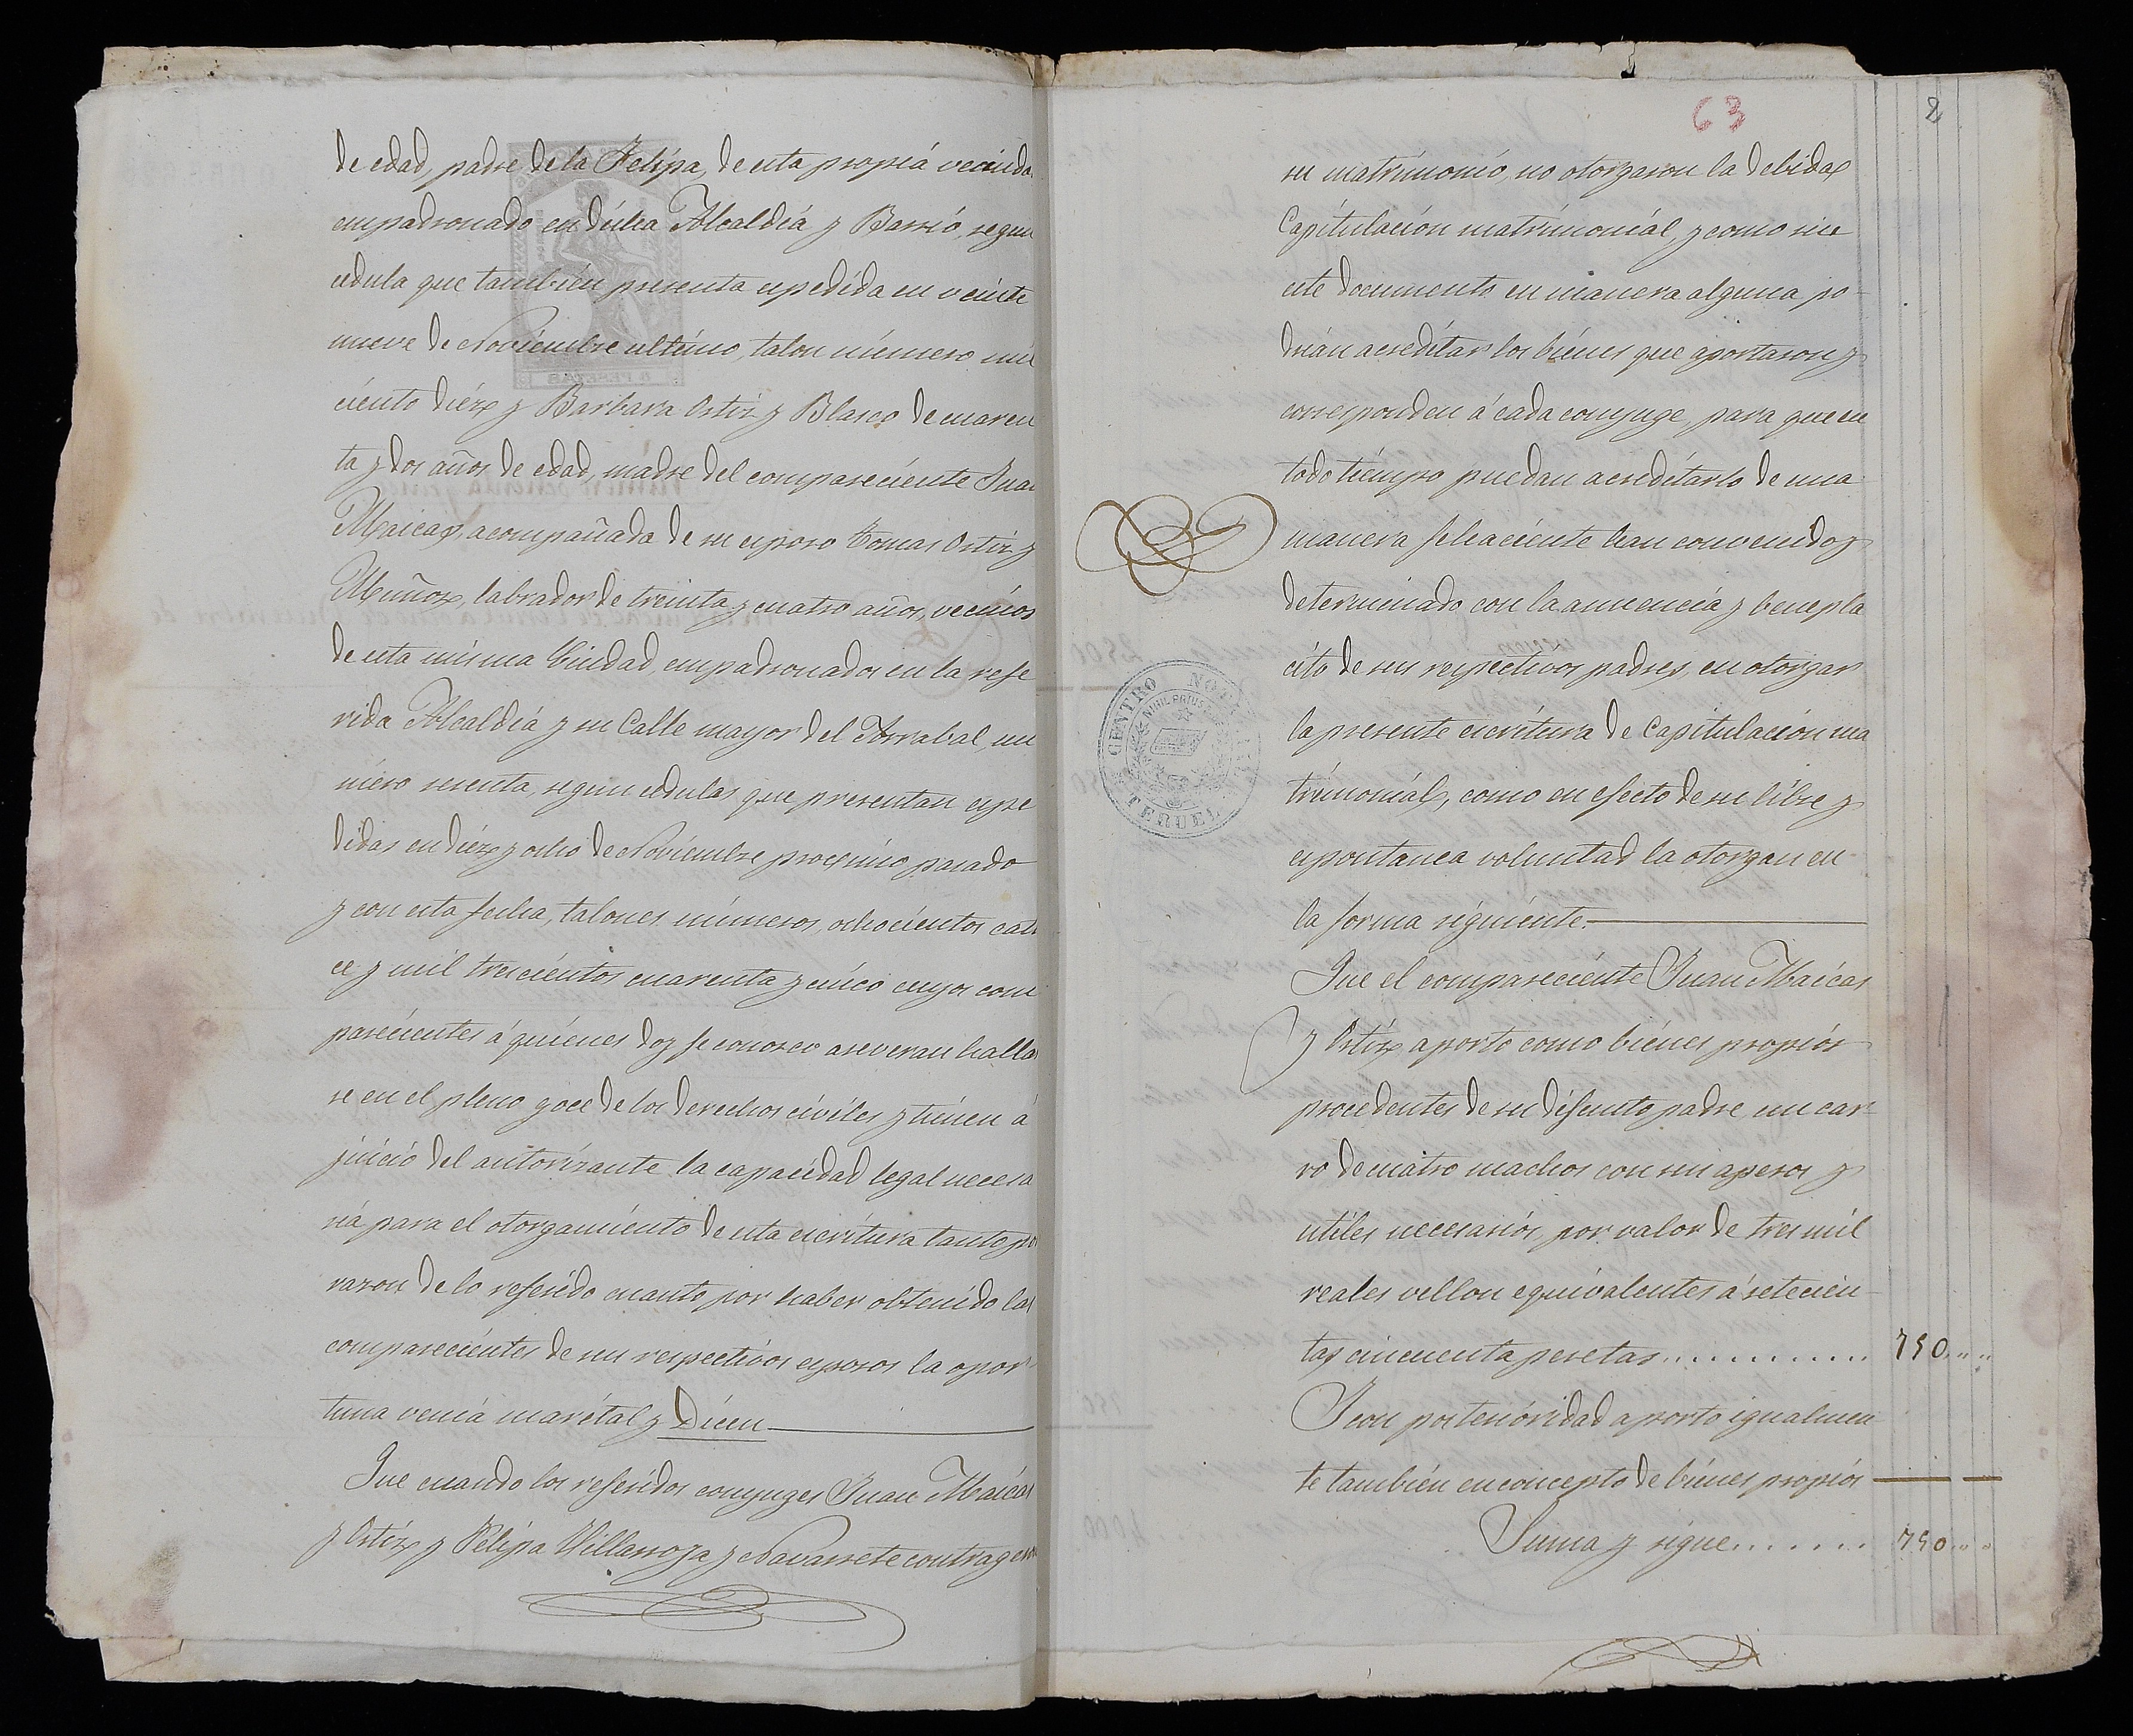 de edad, padre de la Felipa, de esta propia vecinda
empadronado en dicha Alcaldia y Barrio, segun
cedula que tambien presenta espedida en veinte
nueve de Noviembre ultimo, talon número mil
ciento diez y Barbara Ortiz y Blasco de cuaren
ta y dos años de edad, madre del compareciente Juan
Maicas, acompañada de su esposo Tomas Ortiz y
Muñoz, labrador de treinta y cuatro años, vecinos
de esta misma Ciudad, empadronados en la refe
rida Alcaldia y su Calle mayor del Arrabal, nu
mero sesenta, segun cedulas que presentan espe
didas en diez y ocho de Noviembre proximo pasado
y con esta fecha, talones números, ochocientos cator
ce y mil trescientos cuarenta y cinco cuyos com
parecientes á quienes doy fe conozco aseveran hallar
se en el pleno goce de los derechos civiles y tienen á
juicio del autorizante la capacidad legal necesa
ria para el otorgamiento de esta escritura tanto por
razon de lo referido cuanto por haber obtenido las
comparecientes de sus respectivos esposos la opor
tuna venia marital y Dicen
Que cuando los referidos conyuges Juan Maicas
y Ortiz y Felipa Villarroya y Navarrete contrageron
63
2
su matrimonio, no otorgaron la debida
Capitulación matrimonial, y como sin
este documento en manera alguna po-
drián acreditar los bienes que aportaron y
corresponden á cada conyuge, para que en
todo tiempo puedan acreditarlo de una
manera fehaciente han convenido y
determinado con la anuencia y benepla
cito de sus respectivos padres, en otorgar
la presente escritura de Capitulación ma
trimonial, como en efecto de su libre y
espontanea voluntad la otorgan en
la forma siguiente.
CENTRO NOTA
NIHIL PRIUS
TERUEL
Que el compareciente Juan Maicas
y Ortiz aporto como bienes propios
procedentes de su difunto padre, un car-
ro de cuatro machos con sus aperos y
utiles necesarios, por valor de tres mil
reales vellon equivalentes á setecien-
tas cincuenta pesetas............ 750.. ..
Y con posterioridad aporto igualmen
te tambien en concepto de bienes propios
Suma y sigue....... 750.. ..